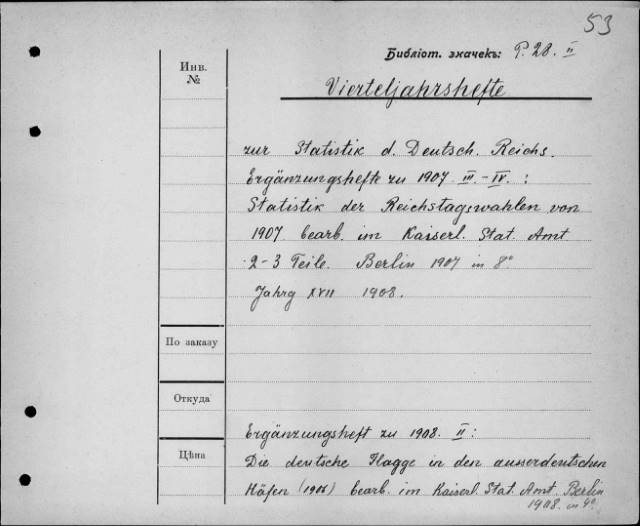 53
Библіот. значекъ: P. 28. II
Инв.
№
Vierteljahrshefte
zur Statistik d. Deutsch. Reichs.
Ergänzungshefte zu 1907 III.-IV.:
Statistik der Reichstagswahlen von
1907. bearb. im Kaiserl. Stat. Amt
2-3 Teile. Berlin 1907 in 8°
Jahrg XVII 1908.
По заказу
Откуда
Ergänzungsheft zu 1908. II:
Цѣна
Die deutsche Flagge in den ausserdeutschen
Häfen (1906) bearb. im Kaiserl. Stat. Amt. Berlin
1908. in 4°.